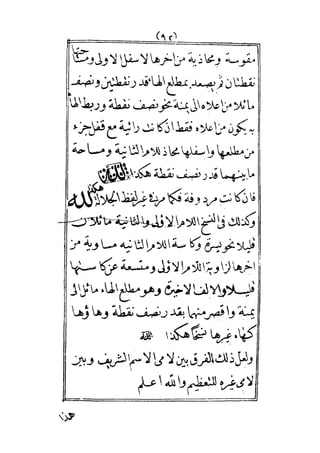 (٩٢)
مقوسة ومحاذية من اخرها الاسفل الاولى ومساحتها
نقطتان ثم يصعد بمطلع الهاء قدر نقطتين ونصف
مائلا من اعلاه الى يمنة نحو نصف نقطة وربط الهاء
به يكون من اعلاه فقط ان كانت رائية مع قفل جزء
من مطلعها واسفلها محاذ للام الثانية ومساحة
ما بينهما قدر نصف نقطة هكذا
فان كانت مردوفة فكما مر في غير لفظ الجلالة هكذا الله
وكذلك في النسخ اللام الاولى والثانية مائلان
قليلا نحو يسرة وكاسة اللام الثانيه مساوية من
اخرها لزاوية اللام الاولى ومتسعة عن كاستها
قليلا والالف الاخيرة وهو مطلع الهاء مائل الى
يمنة واقصر منهما بقدر نصف نقطة وهاؤها
كهاء غيرها نسخا هكذا الله
ولعل ذلك الفرق بين لامى الاسم الشريف وبين
لامى غيره للتعظيم والله اعلم
هذا